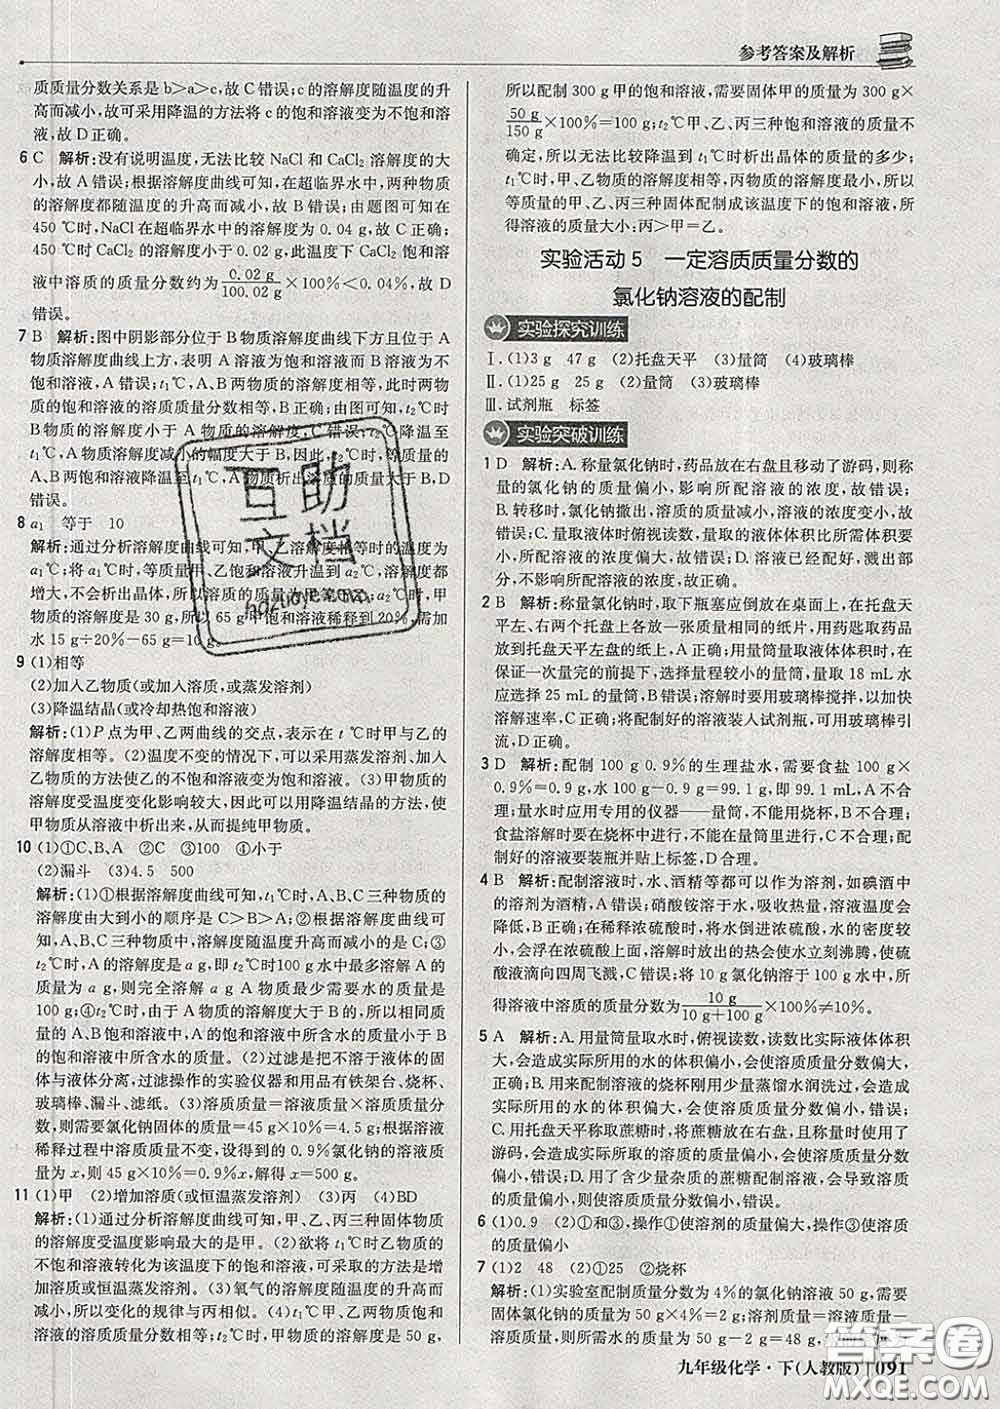 参考答案及解析
质质量分数关系是b>a>c,故C错误;c的溶解度随温度的升
高而减小,故可采用降温的方法将c的饱和溶液变为不饱和溶
液,故D正确。
6 C 解析:没有说明温度,无法比较NaCl和CaCl₂溶解度的大
小,故A错误;根据溶解度曲线可知,在超临界水中,两种物质
的溶解度都随温度的升高而减小,故B错误;由题图可知在
450 ℃时,NaCl在超临界水中的溶解度为0.04 g,故C正确;
450 ℃时CaCl₂的溶解度小于0.02 g,此温度下CaCl₂饱和溶
液中溶质的质量分数约为0.02 g/100.02 g×100%<0.04%,故D
错误。
7 B 解析:图中阴影部分位于B物质溶解度曲线下方且位于A
物质溶解度曲线上方,表明A溶液为饱和溶液而B溶液为不
饱和溶液,A错误;t₁℃时,A、B两物质的溶解度相等,此时两物
质的饱和溶液的溶质质量分数相等,B正确;由图可知,t₂℃时
B物质的溶解度小于A物质的溶解度,C错误;t₂℃降温至
t₁℃时,A物质溶解度减小的幅度大于B,因此,t₂℃时两物
质的饱和溶液降温至t₁℃时,析出晶体的质量A大于B,D
错误。
8 a₁ 等于 10
解析:通过分析溶解度曲线可知,甲、乙溶解度相等时的温度为
a₁℃;将a₁℃时,等质量甲、乙饱和溶液升温到a₂℃,溶解度都
增大,不会析出晶体,所以溶质的质量
物质的质量是30 g,所以65 g甲的饱和溶液稀释到20%,需加
水15 g÷20%-65 g=10 g。
9 (1)相等
(2)加入乙物质(或加入溶质,或蒸发溶剂)
(3)降温结晶(或冷却热饱和溶液)
解析:(1)P点为甲、乙两曲线的交点,表示在t℃时甲与乙的
溶解度相等。(2)温度不变的情况下,可以采用蒸发溶剂、加入
乙物质的方法使乙的不饱和溶液变为饱和溶液。(3)甲物质的
溶解度受温度变化影响较大,因此可以用降温结晶的方法,使
甲物质从溶液中析出来,从而提纯甲物质。
10 (1)①C、B、A ②C ③100 ④小于
(2)漏斗 (3)4.5 500
解析:(1)①根据溶解度曲线可知,t₁℃时,A、B、C三种物质的
溶解度由大到小的顺序是C>B>A;②根据溶解度曲线可知,
三种物质中,溶解度随温度升高而减小的是C;③
t₂℃时,A的溶解度为a g,即t₂℃时100 g水中最多溶解A物
质的质量为a g,则完全溶解a g A物质最少需要水的质量为
100 g;④t₂℃时,由于A物质的溶解度大于B,所以等质量的
A、B饱和溶液中,A的饱和溶液中所含水的质量小于B的
饱和溶液中所含水的质量。(2)过滤是把不溶于液体的固体
与液体分离,过滤操作的实验仪器和用品有铁架台、烧杯、
玻璃棒、漏斗、滤纸。(3)溶质质量=溶液质量×溶质质量分
数,则需要氯化钠固体的质量=45 g×10%=4.5 g;根据溶液
稀释过程中溶质质量不变,设得到的0.9%氯化钠溶液的
质量为x,则45 g×10%=0.9%x,解得x=500 g。
11 (1)甲 (2)增加溶质(或恒温蒸发溶剂) (3)丙 (4)BD
解析:(1)通过分析溶解度曲线可知,甲、乙、丙三种固体物质的
溶解度受温度影响最大的是甲。(2)欲将t₁℃时乙物质的不
饱和溶液转化为该温度下的饱和溶液,可采取的方法是增加
溶质或恒温蒸发溶剂。(3)氧气的溶解度随温度的升高而减
小,所以变化的规律与丙相似。(4)t₁℃时,甲、乙两物质饱和
溶液的溶质质量分数相等;t₂℃时,甲物质的溶解度是50 g,
所以配制300 g甲的饱和溶液,需要固体甲的质量为300 g×
50 g/150 g×100%=100 g;t₂℃甲、乙、丙三种饱和溶液的质量不
确定,所以无法比较降温到t₁℃时析出晶体的质量的多少;
t₁℃时,甲、乙物质的溶解度相等,丙物质的溶解度最小,所以
等质量的甲、乙、丙三种物质配制成该温度下的饱和溶液,所
得溶液的质量大小:丙>甲=乙。
实验活动5 一定溶质质量分数的
氯化钠溶液的配制
实验探究训练
Ⅰ.(1)3 g 47 g (2)托盘天平 (3)量筒 (4)玻璃棒
Ⅱ.(1)25 g 25 g (2)量筒 (3)玻璃棒
Ⅲ.试剂瓶 标签
实验突破训练
1 D 解析:A.称量氯化钠时,药品放在右盘且移动了游码,则称
量的氯化钠的质量偏小,影响所配溶液的浓度,故错误;
B.转移时,氯化钠撒出,溶质的质量变小,溶液的浓度变小,故
错误;C.量取液体时俯视读数,量取的液体体积比所需体积
小,所配溶液的浓度偏大,故错误;D.溶液已经配好,溅出部
分,不影响所配溶液的浓度,故正确。
2 B 解析:称量氯化钠时,取下瓶塞应倒放在桌面上,在托盘天
平左、右两个托盘上各放一张质量相同的纸片,用药匙取药品
放到托盘天平左盘的纸上,A正确;量取液体体积时,在
保证一次量完的前提下,选择量程较小的量筒,量取18 mL水
应选择25 mL的量筒,B错误;溶解时要用玻璃棒搅拌,以加快
溶解速率,C正确;将配制好的溶液装入试剂瓶,可用玻璃棒引
流,D正确。
3 D 解析:配制100 g 0.9%的生理盐水,需要食盐100 g
×0.9%=0.9 g,水100 g-0.9 g=99.1 g,即99.1 mL,A不合
理;量水时应用专用的仪器——量筒,不能用烧杯,B不合理;
食盐溶解时要在烧杯中进行,不能在量筒里进行,C不合理;
配制好的溶液要装瓶并贴上标签,D合理。
4 B 解析:配制溶液时,水、酒精等都可以作为溶剂,如碘酒中
的溶剂为酒精,A错误;硝酸铵溶于水,吸收热量,温度会
降低,B正确;在稀释浓硫酸时,将水倒进浓硫酸,水的密度较
小,会浮在浓硫酸上面,溶解时放出的热会使水立刻沸腾,使硫
酸液滴向四周飞溅,C错误;将10 g氯化钠溶于100 g水中,所
得溶液中溶质的质量分数为10 g/10 g+100 g×100%≠10%。
5 A 解析:A.用量筒量取水时,俯视读数,读数比实际液体体积
大,会造成实际所用的水的体积偏小,会使溶质质量分数偏大,
正确;B.用来配制溶液的烧杯刚用少量蒸馏水润洗过,会造成
实际所用的水的体积偏大,会使溶质质量分数偏小,错误;
C.用托盘天平称取蔗糖时,将蔗糖放在右盘,且称量时使用了
游码,会造成实际所取的溶质的质量偏小,会使溶质质量分数
偏小,错误;D.用了含少量杂质的蔗糖配制溶液,会导致溶质
偏小,则使溶质质量分数偏小,错误。
6 (1)0.9 (2)①和③,操作①使溶剂的质量偏大,操作③使溶质
的质量偏小
7 (1)2 48 (2)①25 ②烧杯
解析:(1)实验室配制质量分数为4%的氯化钠溶液50 g,需要
固体氯化钠的质量为50 g×4%=2 g;溶剂质量=溶液质量-
溶质质量,则所需水的质量为50 g-2 g=48 g,
九年级化学·下(人教版) 091
互助
文档
答案圈
MXQE.COM